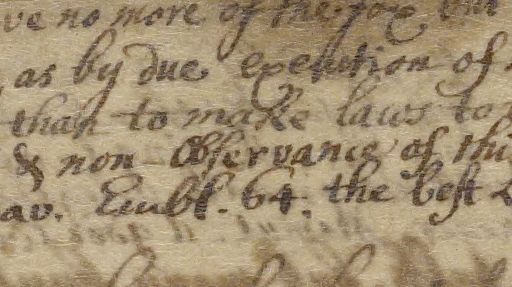 ve no more of the fox but
as by due execution of
than to make laws to
& non Observance of this
av. Embl. 64. the best